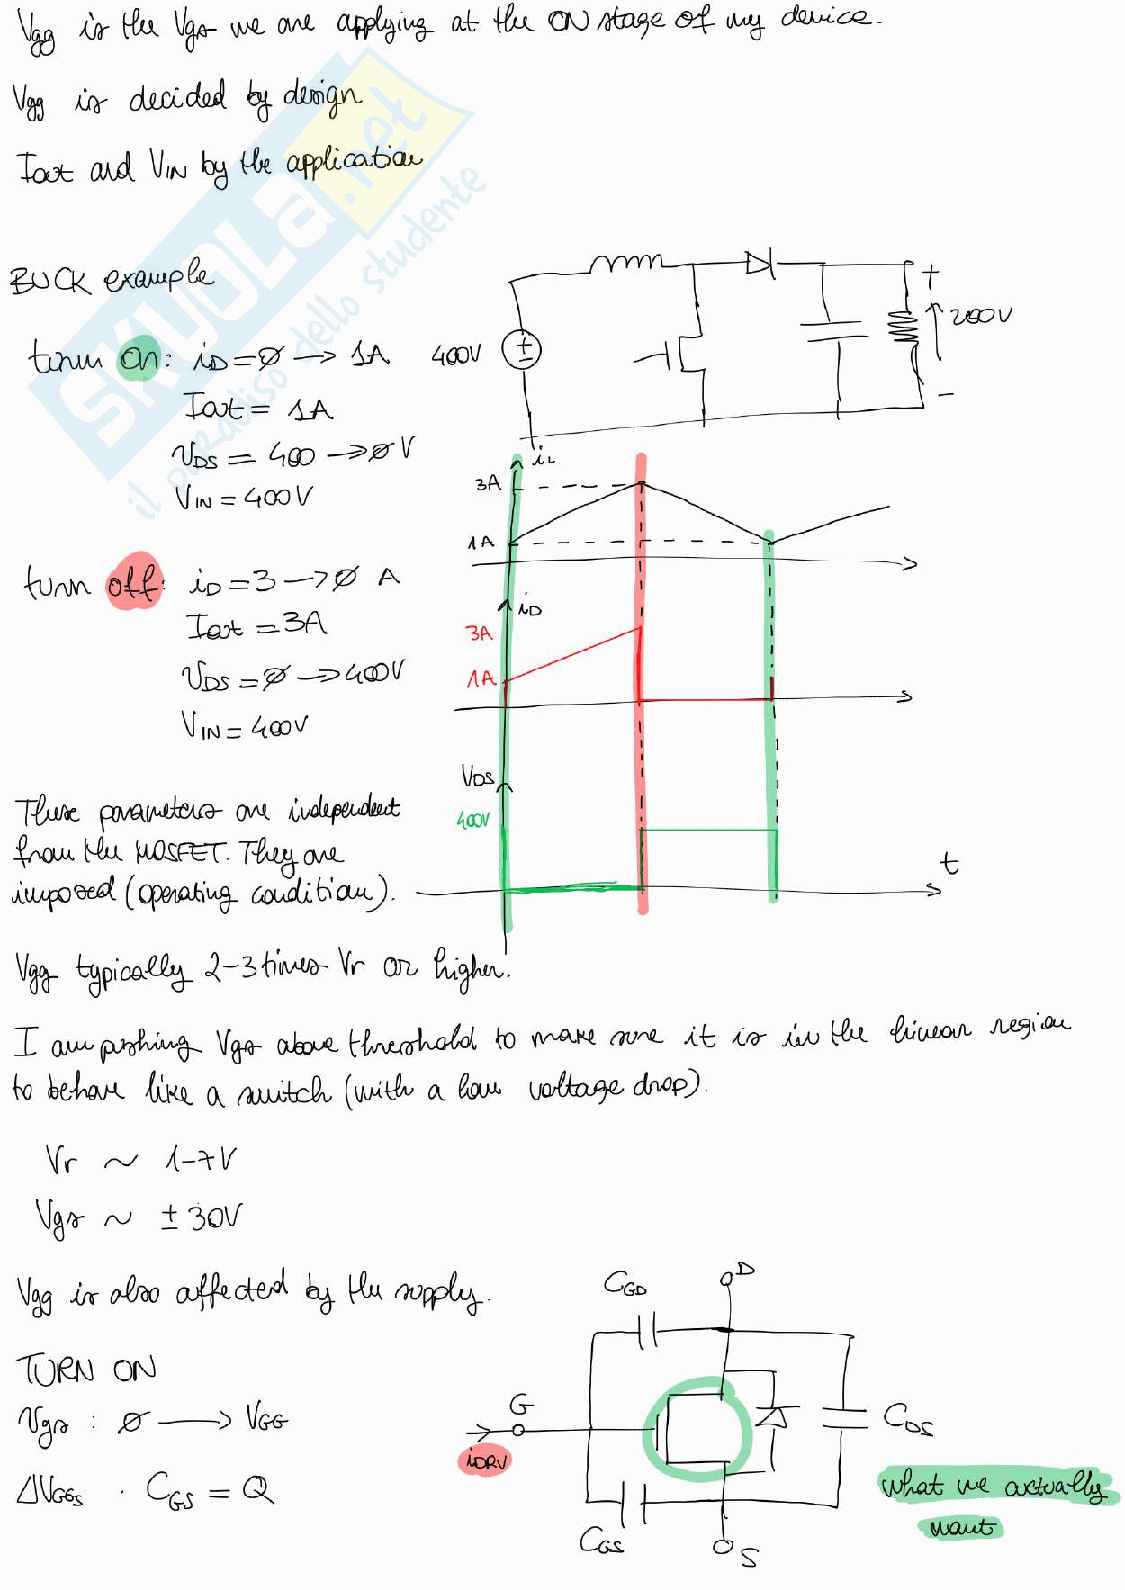 Vgg is the Vgs we are applying at the ON stage of my device.
Vgg is decided by design
Iout and VIN by the application
SKUOLA.net
il paradiso dello studente
BUCK example
turn on: iD = ∅ → 1A
Iout = 1A
VDS = 400 → ∅ V
VIN = 400V
400V
+
200V
-
iL
3A
1A
turn off: iD = 3 → ∅ A
Iout = 3A
VDS = ∅ → 400V
VIN = 400V
iD
3A
1A
VDS
400V
t
These parameters are independent
from the MOSFET. They are
imposed (operating condition).
Vgg typically 2-3 times VT or higher.
I am pushing Vgs above threshold to make sure it is in the linear region
to behave like a switch (with a low voltage drop).
VT ~ 1-7V
Vgs ~ ± 30V
Vgg is also affected by the supply.
TURN ON
Vgs : ∅ → VGG
ΔVGGs · CGS = Q
CGD
D
G
iDRV
CDS
CGS
S
what we actually
want